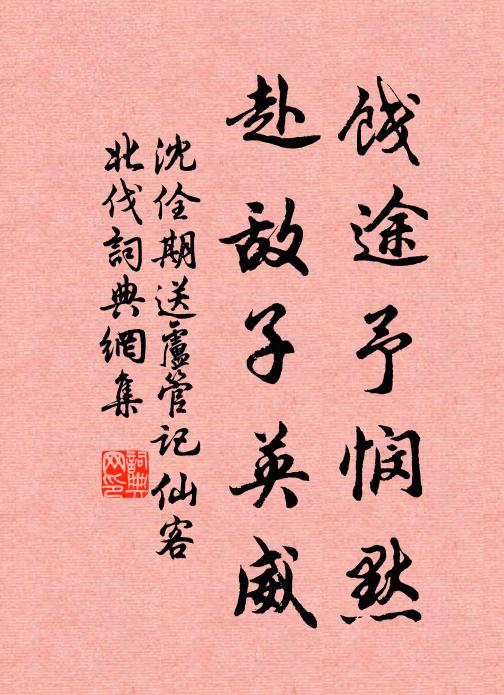 饯途予悯默
赴敌子英威
沈佺期送盧管记仙客
北伐詞典網集
詞典網印